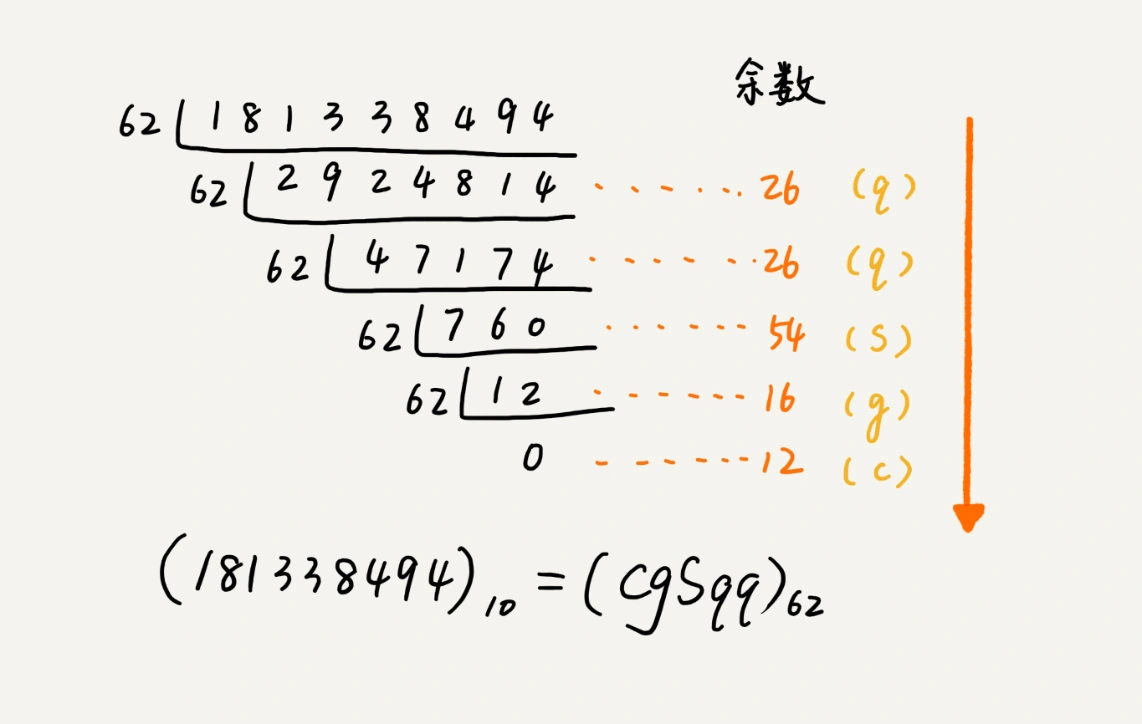 余数
62 181338494
62 2924814 ...... 26 (q)
62 47174 ...... 26 (q)
62 760 ...... 54 (S)
62 12 ...... 16 (g)
0 ...... 12 (c)
(181338494)10 = (cgSqq)62